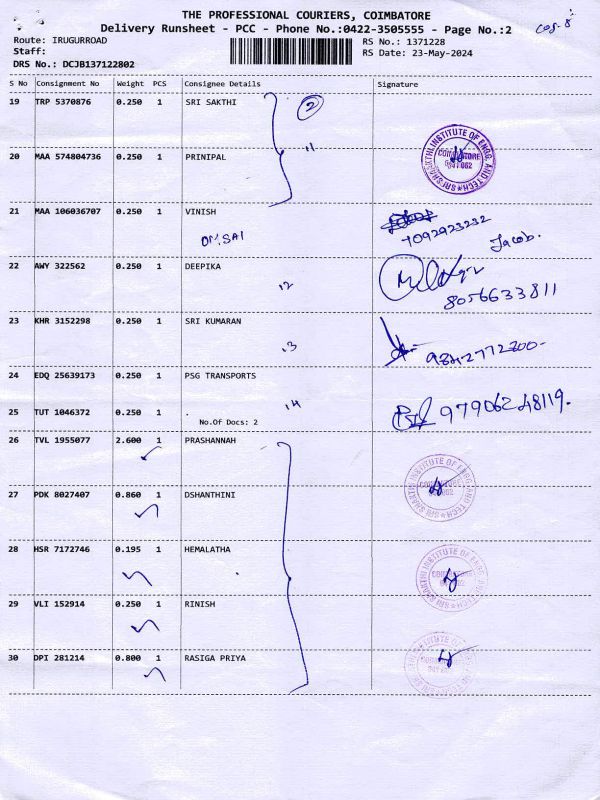 THE PROFESSIONAL COURIERS, COIMBATORE
Delivery Runsheet - PCC - Phone No.:0422-3505555 - Page No.:2
Route: IRUGURROAD
RS No.: 1371228
Staff:
RS Date: 23-May-2024
DRS No.: DCJB137122802
S No Consignment No Weight PCS Consignee Details Signature
19 TRP 5370876 0.250 1 SRI SAKTHI
2
11
20 MAA 574804736 0.250 1 PRINIPAL
SRI SHAKTHI INSTITUTE OF ENGG. AND TECH
COIMBATORE
641 062
21 MAA 106036707 0.250 1 VINISH
OM SAI
7092923232
Jacob.
22 AWY 322562 0.250 1 DEEPIKA
12
8056633811
23 KHR 3152298 0.250 1 SRI KUMARAN
13
9842772200-
24 EDQ 25639173 0.250 1 PSG TRANSPORTS
14
97906248119.
25 TUT 1046372 0.250 1 .
No.Of Docs: 2
26 TVL 1955077 2.600 1 PRASHANNAH
27 PDK 8027407 0.860 1 DSHANTHINI
28 HSR 7172746 0.195 1 HEMALATHA
29 VLI 152914 0.250 1 RINISH
30 DPI 281214 0.800 1 RASIGA PRIYA